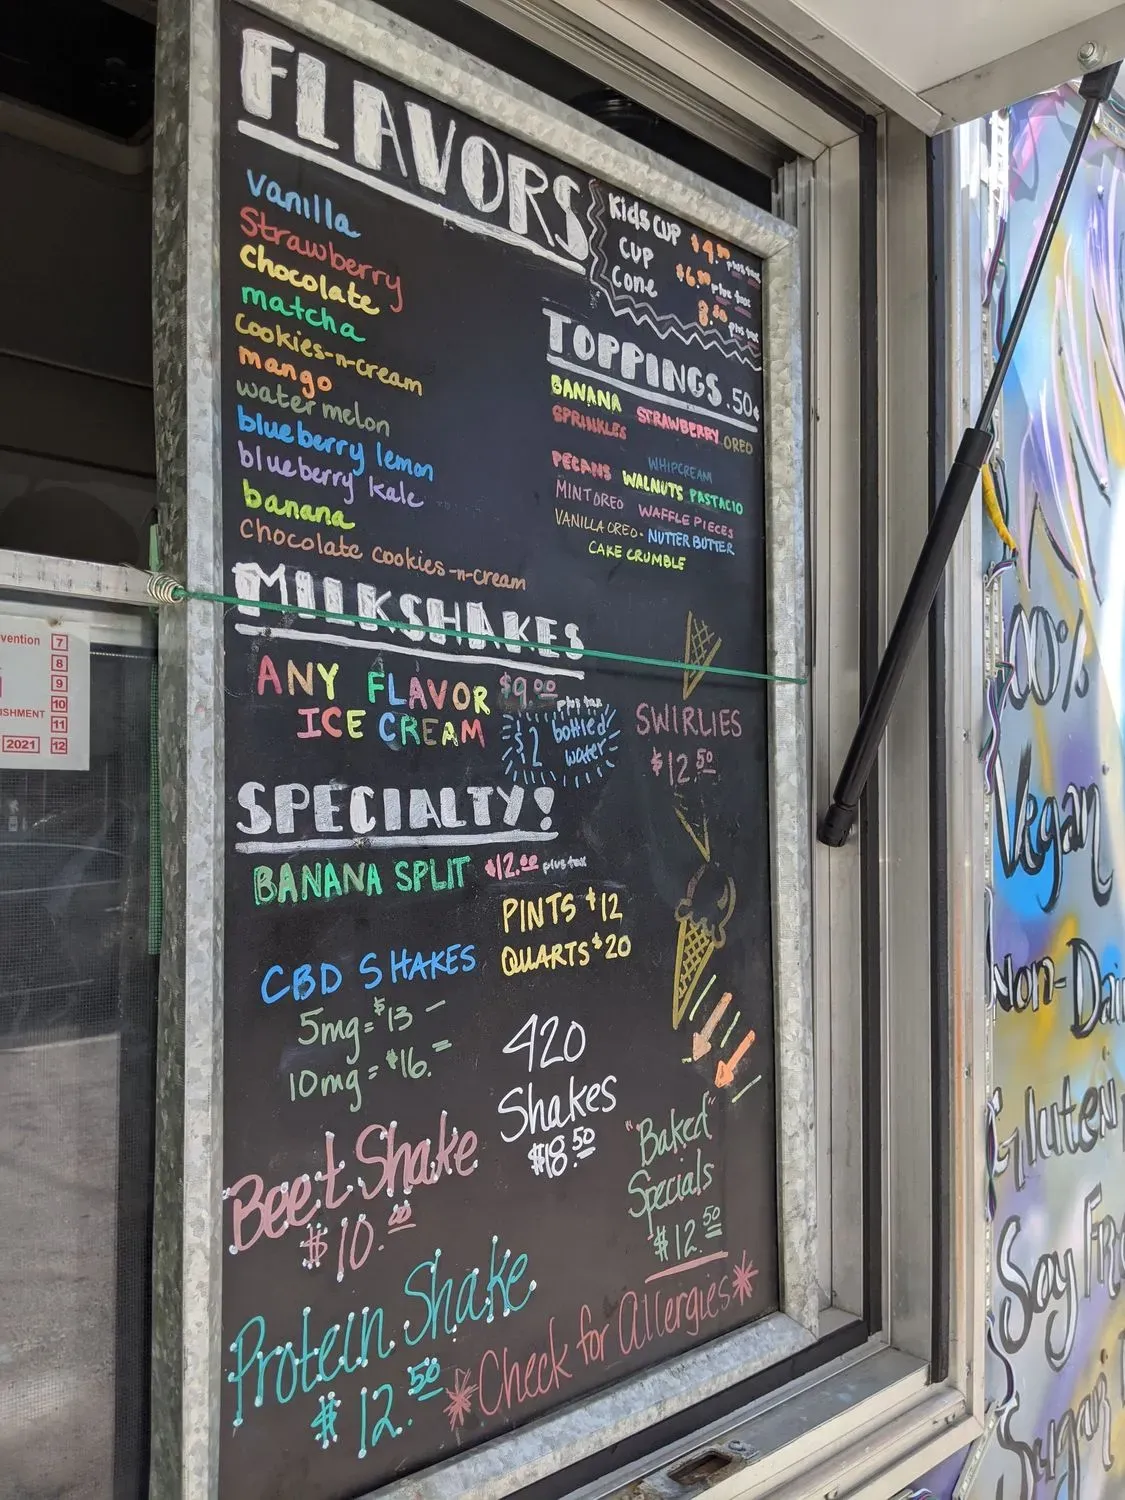 FLAVORS
vanilla
Strawberry
Chocolate
matcha
Cookies-n-cream
mango
watermelon
blueberry lemon
blueberry kale
banana
Chocolate cookies-n-cream
Kids cup $4.00 plus tax
cup $6.00 plus tax
Cone 8.50 plus tax
TOPPINGS .50¢
BANANA STRAWBERRY OREO
SPRINKLES
PECANS WHIPCREAM
WALNUTS PASTACIO
MINT OREO WAFFLE PIECES
VANILLA OREO · NUTTER BUTTER
CAKE CRUMBLE
MILKSHAKES
ANY FLAVOR $9.00 plus tax
ICE CREAM
$2 bottled
water
SWIRLIES
$12.50
SPECIALTY!
BANANA SPLIT $12.00 plus tax
PINTS $12
QUARTS $20
CBD SHAKES
5mg = $13 –
10mg = $16. =
420
Shakes
$18.50
"Baked"
Specials
$12.50
Beet Shake
$10.00
Protein Shake
$12.50
*Check for Allergies*
vention
7
8
9
10
ISHMENT
11
2021
12
Vegan
Non-Dai
Gluten
Soy Fre
Sugar